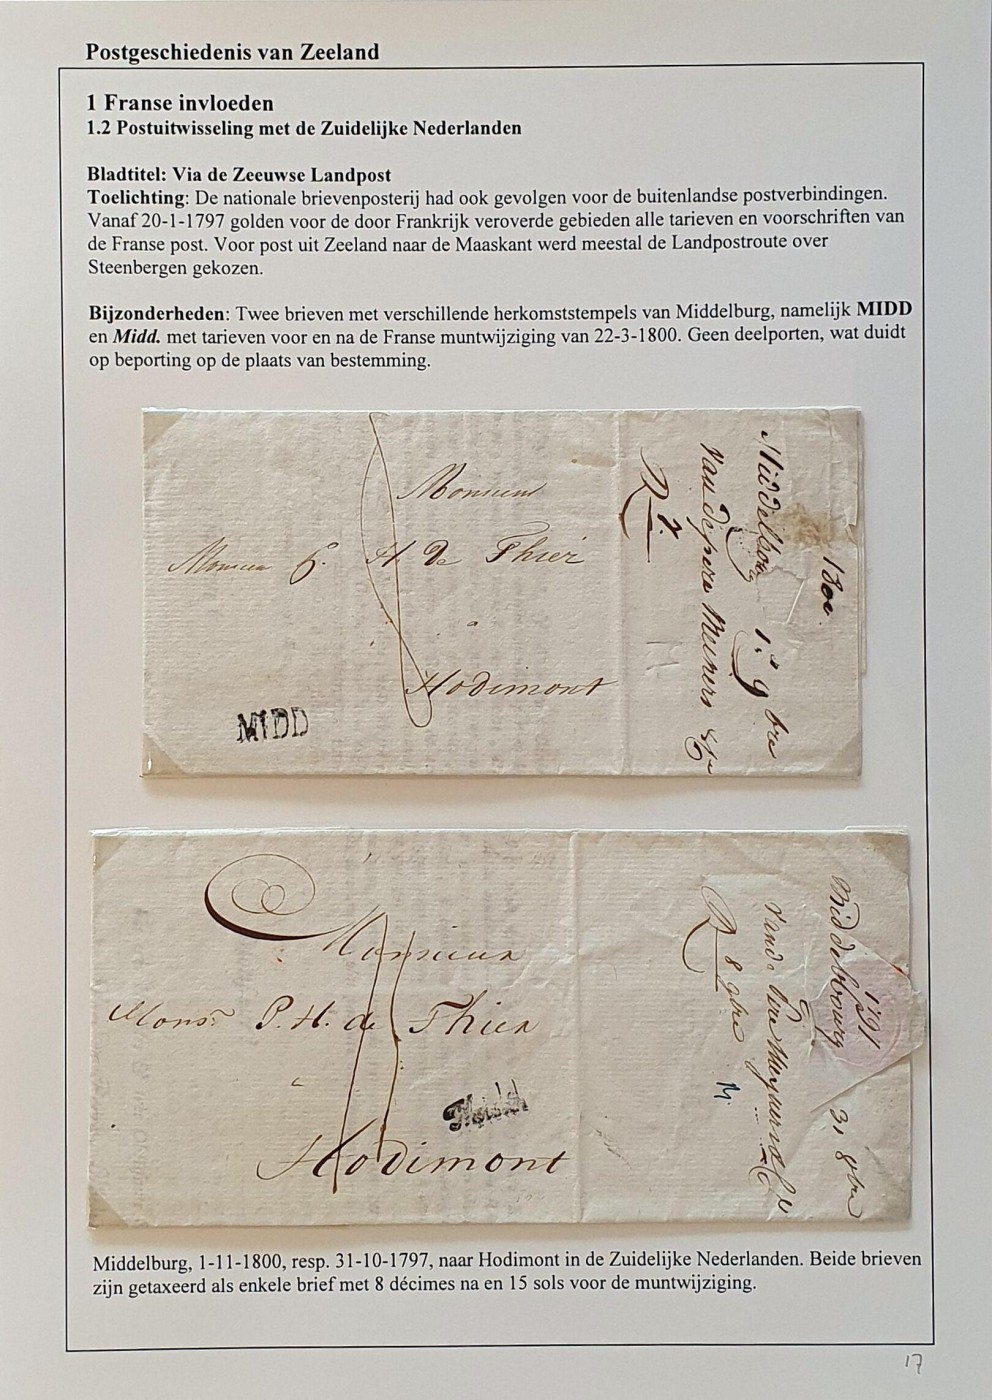 Postgeschiedenis van Zeeland
1 Franse invloeden
1.2 Postuitwisseling met de Zuidelijke Nederlanden
Bladtitel: Via de Zeeuwse Landpost
Toelichting: De nationale brievenposterij had ook gevolgen voor de buitenlandse postverbindingen.
Vanaf 20-1-1797 golden voor de door Frankrijk veroverde gebieden alle tarieven en voorschriften van
de Franse post. Voor post uit Zeeland naar de Maaskant werd meestal de Landpostroute over
Steenbergen gekozen.
Bijzonderheden: Twee brieven met verschillende herkomststempels van Middelburg, namelijk MIDD
en Midd. met tarieven voor en na de Franse muntwijziging van 22-3-1800. Geen deelporten, wat duidt
op beporting op de plaats van bestemming.
Monsieur
Monsieur P. H. De Thier
a
Hodimont
MIDD
1800.
Middelbourg 1r 9bre
R
Monsieur
Monsr P. H. de Thier
a
Hodimont
1797
Middelbourg 31 8bre
R 8 9bre
Middelburg, 1-11-1800, resp. 31-10-1797, naar Hodimont in de Zuidelijke Nederlanden. Beide brieven
zijn getaxeerd als enkele brief met 8 décimes na en 15 sols voor de muntwijziging.
17